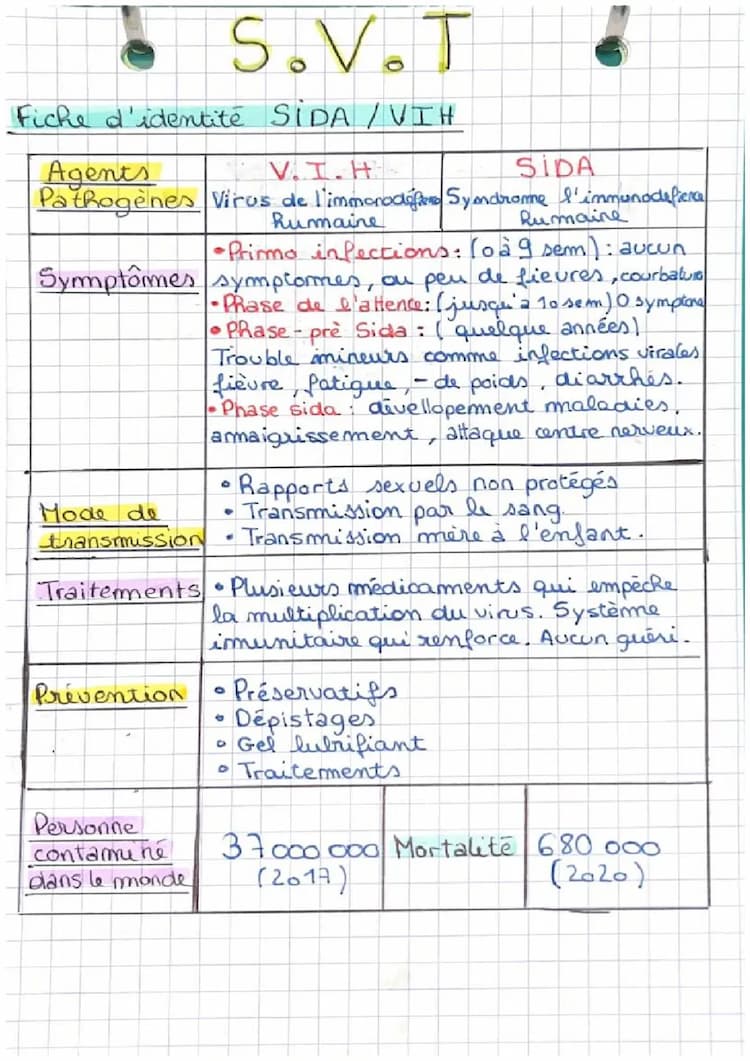 S.V.T
Fiche d'identité SiDA / VIH
Agents Pathogènes
V.I.H
Virus de l'immonodéficie
Rumaine
SiDA
Syndrome l'immunodeficience
Rumaine
Symptômes
•Primo infections: (0 à 9 sem) : aucun
symptomes, ou peu de fievres, courbature
•Phase de l'attence: (jusqu'à 10 sem) 0 symptome
•Phase - prè Sida : ( quelque années)
Trouble mineurs comme infections virales
fièvre, fatigue, - de poids, diarrhés.
•Phase sida : divellopement maladies,
armaigrissement, attaque centre nerveux.
Mode de
transmission
• Rapports sexuels non protégés
• Transmission par le sang.
• Transmission mère à l'enfant.
Traitements
• Plusieurs médicaments qui empèche
la multiplication du virus. Système
imunitaire qui renforce. Aucun guéri.
Prévention
• Préservatifs
• Dépistages
• Gel lubrifiant
• Traitements
Personne
contaminé
dans le monde
37 000 000
(2017)
Mortalité
680 000
(2020)